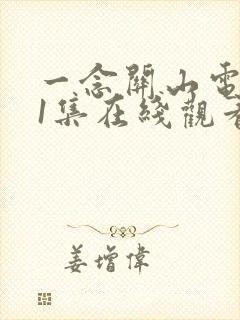 一念關山電
1集在綫觀看
姜增偉